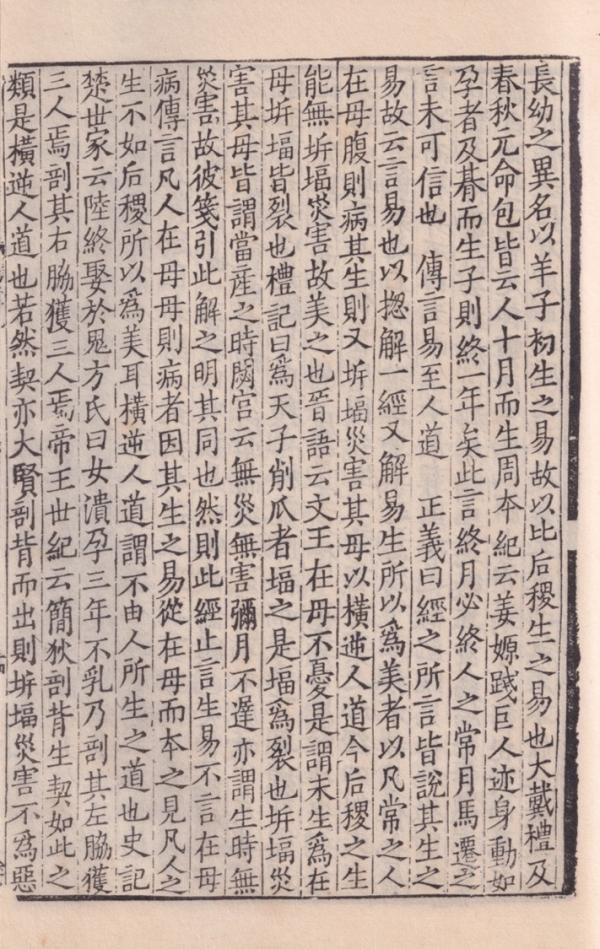 長幼之異名以羊子初生之易故以比后稷生之易也大戴禮及
春秋元命包皆云人十月而生周本紀云姜嫄踐巨人迹身動如
孕者及朞而生子則終一年矣此言終月必終人之常月馬遷之
言未可信也　傳言易至人道　正義曰經之所言皆說其生之
易故云言易也以揔解一經又解易生所以爲美者以凡常之人
在母腹則病其生則又坼堛災害其母以横逆人道今后稷之生
能無坼堛災害故美之也晋語云文王在母不憂是謂未生爲在
母坼堛皆裂也禮記曰爲天子削瓜者堛之是堛爲裂也坼堛災
害其母皆謂當産之時閟宫云無災無害彌月不遟亦謂生時無
災害故彼箋引此解之明其同也然則此經止言生易不言在母
病傳言凡人在母母則病者因其生之易從在母而本之見凡人之
生不如后稷所以爲美耳横逆人道謂不由人所生之道也史記
楚世家云陸終娶於鬼方氏曰女潰孕三年不乳乃剖其左脇獲
三人焉剖其右脇獲三人焉帝王世紀云簡狄剖背生契如此之
類是横逆人道也若然契亦大賢剖背而出則坼堛災害不爲惡